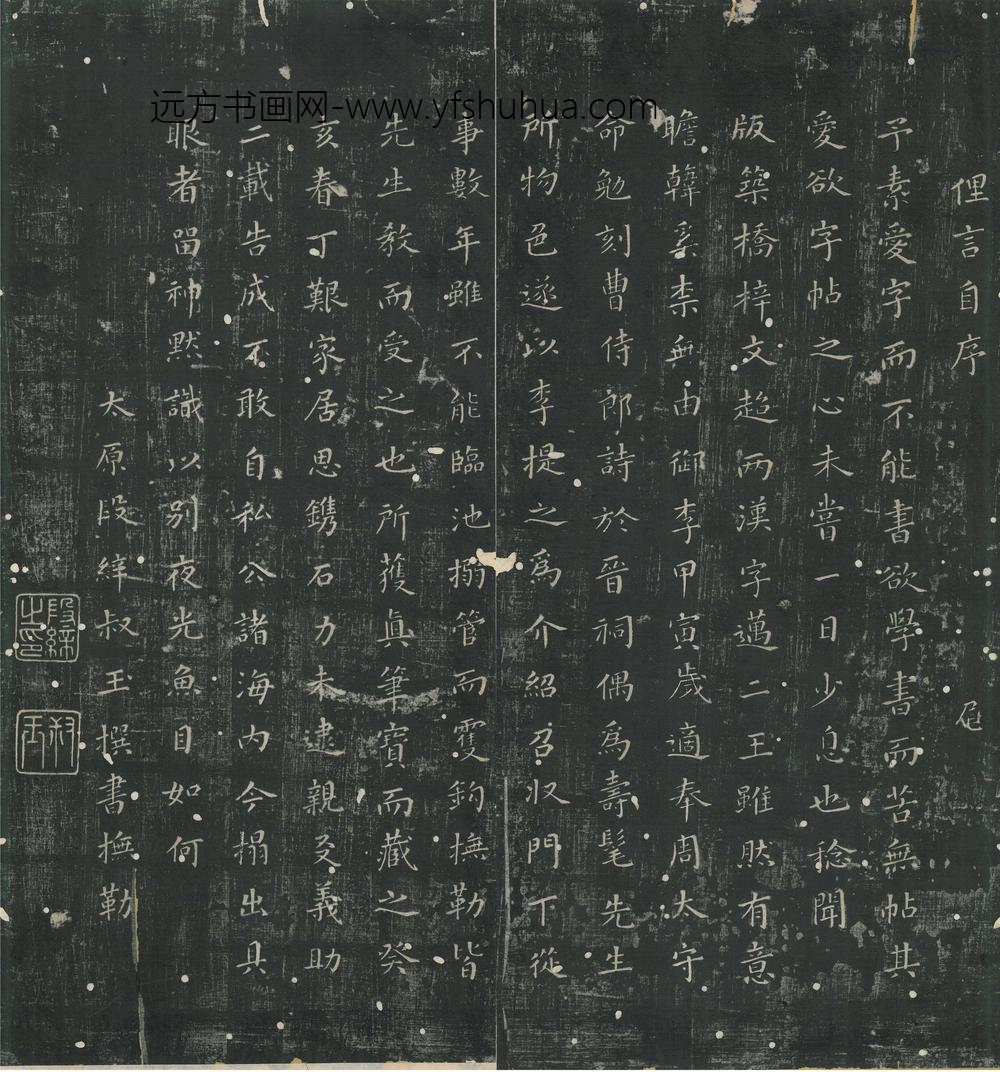 远方书画网-www.yfshuhua.com
俚言自序
尾
予素愛字而不能書欲學書而苦無帖其
愛欲字帖之心未嘗一日少息也稔聞
版築橋梓文超兩漢字邁二王雖然有意
瞻韓奚柰無由御李甲寅歲適奉周太守
命勉刻曹侍郎詩於晉祠偶為壽髦先生
所物色遂以李提之為介紹召收門下從
事數年雖不能臨池搦管而雙鉤撫勒皆
先生教而受之也所獲真筆寶而藏之癸
亥春丁艱家居思鐫石力未逮親友義助
二載告成不敢自私公諸海內今搨出具
眼者留神默識以別夜光魚目如何
太原段絳叔玉撰書撫勒
段絳之印
叔玉